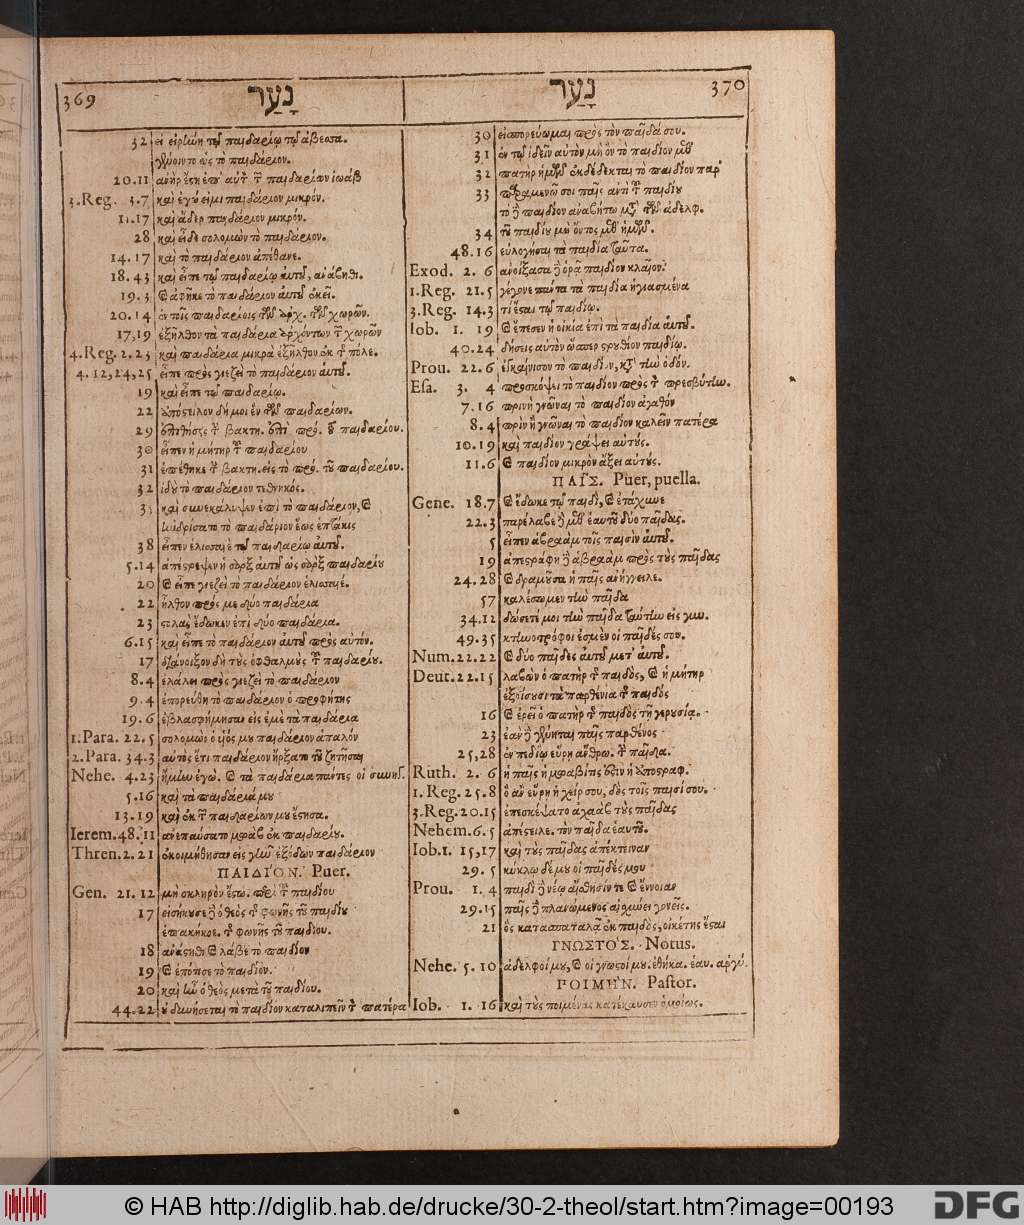 369 נָעַר
32 εἰ εἰρήνη τῷ παιδαρίῳ τῷ ἀβεσσα.
γένοιντο ὡς τὸ παιδάριον.
20.11 ἀνὴρ ἔστη ἐπ' αὐτ τ παιδαρίων ἰωάβ
3.Reg. 3.7 καὶ ἐγώ εἰμι παιδάριον μικρόν.
11.17 καὶ ἄδερ παιδάριον μικρόν.
28 καὶ εἶδε σολομὼν τὸ παιδάριον.
14.17 καὶ τὸ παιδάριον ἀπέθανε.
18.43 καὶ εἶπε τῷ παιδαρίῳ αὐτοῦ, ἀνάβηθι.
19.3 καὶ ἀφῆκε τὸ παιδάριον αὐτοῦ ἐκεῖ.
20.14 ἐν τοῖς παιδαρίοις τῶν ἀρχ. τῶν χωρῶν.
17,19 ἐξῆλθον τὰ παιδάρια ἀρχόντων τ χωρῶν
4.Reg. 2.23 καὶ παιδάρια μικρὰ ἐξῆλθον ἐκ τ πόλε.
4.12,24,25 εἶπε πρὸς γιεζεὶ τὸ παιδάριον αὐτοῦ.
19 καὶ εἶπε τῷ παιδαρίῳ.
22 ἀπόστειλον δή μοι ἓν τῶν παιδαρίων.
29 ἐπιθήσεις τ βακτη. ἐπὶ πρό. τοῦ παιδαρίου.
30 εἶπεν ἡ μήτηρ τ παιδαρίου
31 ἐπέθηκε τ βακτη. εἰς τὸ πρό. τοῦ παιδαρίου.
32 ἰδοὺ τὸ παιδάριον τεθνηκός.
3 καὶ συνεκάλυψεν ἐπὶ τὸ παιδάριον, καὶ
ἠνδρίσατο τὸ παιδάριον ἕως ἑπτάκις
38 εἶπεν ἐλισσαιὲ τῷ παιδαρίῳ αὐτοῦ.
5.14 ἀπέστρεψεν ἡ σὰρξ αὐτοῦ ὡς σὰρξ παιδαρίου
20 καὶ εἶπε γιεζεὶ τὸ παιδάριον ἐλισσαιέ.
22 ἦλθον πρός με δύο παιδάρια
23 στολὰς ἔδωκεν ἐπὶ δύο παιδάρια.
6.15 καὶ εἶπε τὸ παιδάριον αὐτοῦ πρὸς αὐτόν.
17 διάνοιξον δὴ τοὺς ὀφθαλμοὺς τ παιδαρίου.
8.4 ἐλάλει πρὸς γιεζεὶ τὸ παιδάριον
9.4 ἐπορεύθη τὸ παιδάριον ὁ προφήτης
19.6 ἐβλασφήμησαν εἰς ἐμὲ τὰ παιδάρια
1.Para. 22.5 σολομὼν ὁ υἱός μου παιδάριον ἁπαλόν
2.Para. 34.3 αὐτὸς ἔτι παιδάριον ἤρξατο τοῦ ζητῆσαι
Nehe. 4.23 ἤμην ἐγώ. καὶ τὰ παιδάρια πάντες οἱ
5.16 καὶ τὰ παιδάριά μου
13.19 καὶ ἐκ τ παιδαρίων μου ἔστησα.
Ierem. 48.11 ἀνεπαύσατο μωὰβ ἐκ παιδαρίου.
Thren. 2.21 ἐκοιμήθησαν εἰς γῆν ἐξόδων παιδάριον
ΠΑΙΔΙΌΝ. Puer.
Gen. 21.12 μὴ σκληρὸν ἔστω. περὶ τ παιδίου
17 εἰσήκουσε δὲ ὁ θεὸς τ φωνῆς τοῦ παιδίου
ἐπακήκοε. τ φωνῆς τοῦ παιδίου.
18 ἀνάστηθι καὶ λάβε τὸ παιδίον
19 καὶ ἐπότισε τὸ παιδίον.
20 καὶ ἦν ὁ θεὸς μετὰ τοῦ παιδίου.
44.22 οὐ δυνήσεται τὸ παιδίον καταλιπεῖν τ πατέρα
נָעַר 370
30 εἰσπορεύωμαι πρὸς τὸν παῖδά σου.
31 ἐν τῷ ἰδεῖν αὐτὸν μὴ ὂν τὸ παιδίον μεθ'
32 πατὴρ ἡμῶν ἐκδέδεκται τὸ παιδίον παρ'
33 παραμενῶ σοι παῖς ἀντὶ τ παιδίου
τὸ δὲ παιδίον ἀναβήτω μετὰ τῶν ἀδελφ.
34 τοῦ παιδίου μὴ ὄντος μεθ' ἡμῶν.
48.16 εὐλογῆσαι τὰ παιδία ταῦτα.
Exod. 2.6 ἀνοίξασα δὲ ὁρᾷ παιδίον κλαῖον.
1.Reg. 21.5 γέγονε πάντα τὰ παιδία ἡγιασμένα
3.Reg. 14.3 τί ἔσται τῷ παιδίῳ.
Iob. 1.19 καὶ ἔπεσεν ἡ οἰκία ἐπὶ τὰ παιδία αὐτοῦ.
40.24 δήσεις αὐτὸν ὥσπερ στρουθίον παιδίῳ.
Prou. 22.6 ἐγκαίνισον τὸ παιδίον, κατὰ τὴν ὁδόν.
Esa. 3.4 προσκόψει τὸ παιδίον πρὸς τ πρεσβύτην.
7.16 πρινὴ γνῶναι τὸ παιδίον ἀγαθόν
8.4 πρὶν ἢ γνῶναι τὸ παιδίον καλεῖν πατέρα
10.19 καὶ παιδίον γράψει αὐτούς.
11.6 καὶ παιδίον μικρὸν ἄξει αὐτούς.
ΠΑΙ͂Σ. Puer, puella.
Gene. 18.7 καὶ ἔδωκε τῷ παιδί, καὶ ἐτάχυνε
22.3 παρέλαβε δὲ μεθ' ἑαυτοῦ δύο παῖδας.
5 εἶπεν ἀβραὰμ τοῖς παισὶν αὐτοῦ.
19 ἀπεστράφη δὲ ἀβραὰμ πρὸς τοὺς παῖδας
24.28 καὶ δραμοῦσα ἡ παῖς ἀνήγγειλε.
57 καλέσωμεν τὴν παῖδα
34.12 δώσετέ μοι τὴν παῖδα ταύτην εἰς γυν.
49.35 κτηνοτρόφοι ἐσμὲν οἱ παῖδές σου.
Num. 22.22 καὶ δύο παῖδες αὐτοῦ μετ' αὐτοῦ.
Deut. 22.15 λαβὼν ὁ πατὴρ τ παιδὸς, καὶ ἡ μήτηρ
ἐξοίσουσι τὰ παρθένια τ παιδὸς
16 καὶ ἐρεῖ ὁ πατὴρ τ παιδὸς τῇ γερουσίᾳ.
23 ἐὰν δὲ γένηται παῖς παρθένος
25,28 ἐν πεδίῳ εὕρῃ ἄνθρω. τ παῖδα.
Ruth. 2.6 ἡ παῖς ἡ μωαβῖτις ἐστὶν ἡ ἀποστραφ.
1.Reg. 25.8 ὃ ἂν εὕρῃ ἡ χείρ σου, δὸς τοῖς παισί σου.
3.Reg. 20.15 ἐπεσκέψατο ἀχαὰβ τοὺς παῖδας
Nehem. 6.5 ἀπέστειλε. τὸν παῖδα ἑαυτοῦ.
Iob. 1.15,17 καὶ τοὺς παῖδας ἀπέκτειναν
29.5 κύκλῳ δέ μου οἱ παῖδές μου
Prou. 1.4 παιδὶ δὲ νέῳ αἴσθησίν τε καὶ ἔννοιαν
29.15 παῖς δὲ πλανώμενος αἰσχύνει γονεῖς.
21 ὃς κατασπαταλᾷ ἐκ παιδὸς, οἰκέτης ἔσται
ΓΝΩΣΤΟΣ. Notus.
Nehe. 5.10 ἀδελφοί μου, καὶ οἱ γνωστοί μου. ἐθήκα. ἑαυ. ἀργύ.
ΠΟΙΜΗΝ. Pastor.
Iob. 1.16 καὶ τοὺς ποιμένας κατέκαυσεν ὁμοίως.
© HAB http://diglib.hab.de/drucke/30-2-theol/start.htm?image=00193
DFG